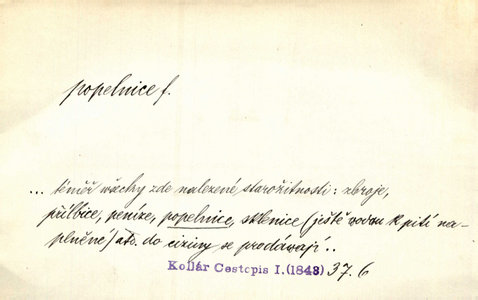 popelnice f.
... téměř wšechy zde nalezené starožitnosti: zbroje,
přílbice, peníze, popelnice, sklenice (ještě wodau k pití na-
plněné) atd. do ciziny se prodáwají..
Kollár Cestopis I.(1843) 37.6